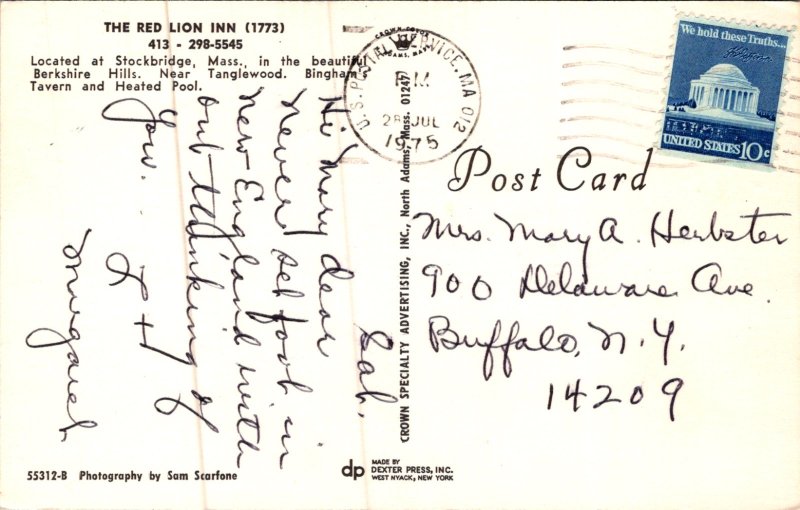 THE RED LION INN (1773)
413 - 298-5545
Located at Stockbridge, Mass., in the beautiful
Berkshire Hills. Near Tanglewood. Bingham's
Tavern and Heated Pool.
Sat.
Hi Mary dear
Never set foot in
New England with
out thinking of
You.
L + J
Margaret
55312-B Photography by Sam Scarfone
CROWN SPECIALTY ADVERTISING, INC., North Adams, Mass. 01247
dp
MADE BY
DEXTER PRESS, INC.
WEST NYACK, NEW YORK
U.S. POSTAL SERVICE, MA 012
PM
28 JUL
1975
We hold these Truths...
UNITED STATES 10c
Post Card
Mrs. Mary A. Herbster
900 Delaware Ave.
Buffalo, N.Y.
14209